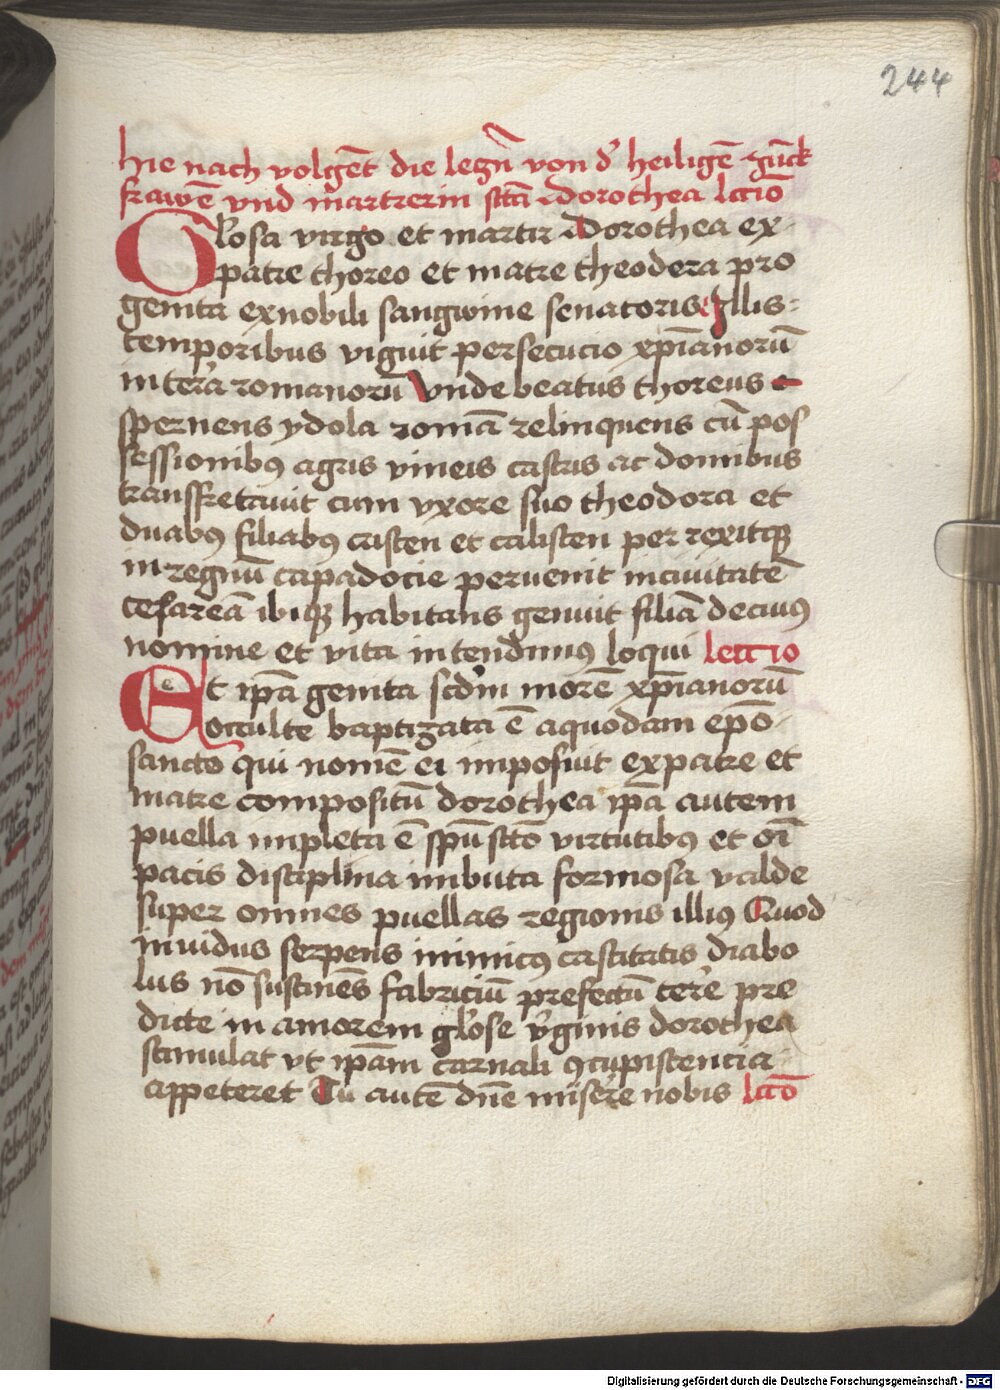 244
hie nach volgēt die legn̄ von d' heiligē Junck
frawē vnd martrerin sctā dorothea lcciō
Glosa virgo et martir dorothea ex
patre thoreo et matre theodera pro
genita ex nobili sangwine senatoris Illis
temporibus viguit persecucio xp̄ianorū
in ter'a romanorū Vnde beatus thoreus
spernens ydola romā relinquens cū pos
sessionibꝫ agris vineis castris ac domibus
transfretauit cum vxore suo theodora et
duabꝫ filiabꝫ cristen et calisten perrexitqꝫ
in regnū capadocie peruenit in ciuitatē
cesareā ibiqꝫ habitans genuit filiā de cuiꝫ
nomine et vita intendimꝫ loqui lectio
Et ip̄a genita scd'm morē xp̄ianorū
occulte baptizata ē a quodam ep̄o
sancto qui nomē ei imposuit ex patre et
matre compositū dorothea ip̄a autem
puella impleta ē sp̄u sctō virtutibꝫ et oī
pacis disciplina imbuta formosa valde
super omnes puellas regionis illiꝫ Quod
inuidus serpens inimicꝫ castitatis diabo
lus nō sustinēs fabriciū prefectū ter'e pre
dicte in amorem gl'ose v'ginis dorothea
stimulat vt ip̄am carnali ꝯcupiscencia
appeteret Tu autē dn̄e miser'e nobis lcciō
Digitalisierung gefördert durch die Deutsche Forschungsgemeinschaft - DFG